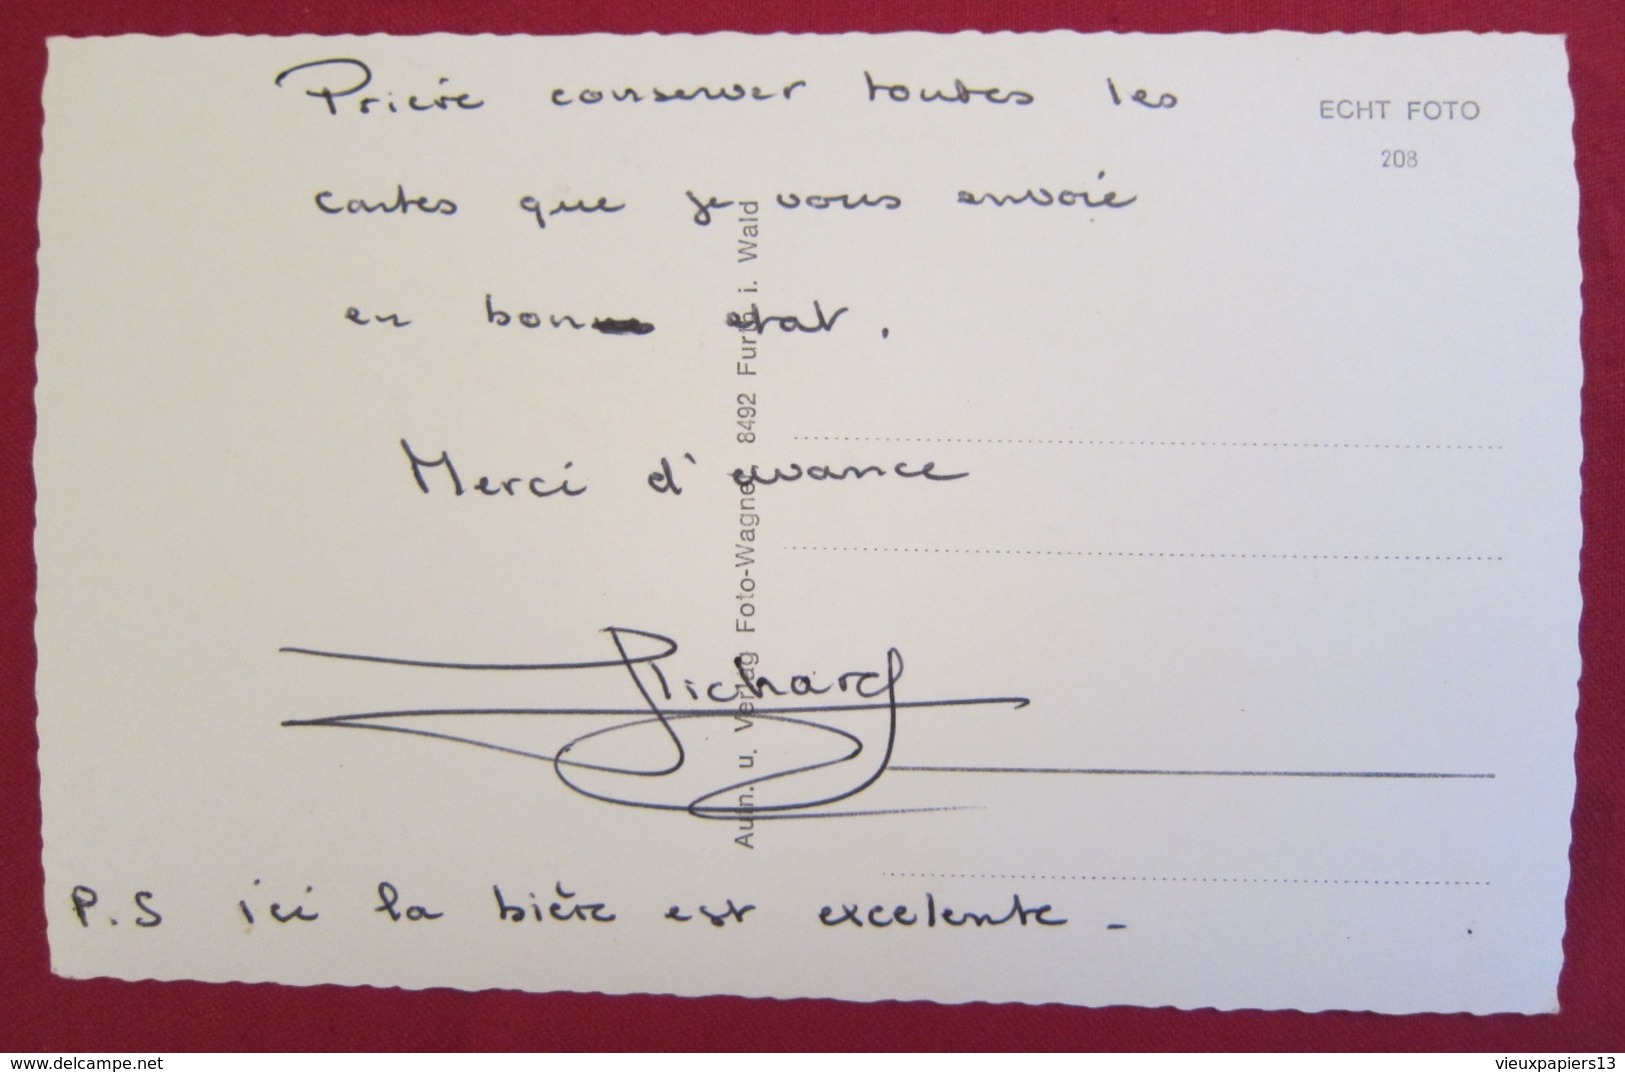 Prière conserver toutes les
ECHT FOTO
208
cartes que je vous envoie
en bon etat.
Merci d'avance
Richard
P.S ici la bière est excelente -
Aufn. u. Verlag Foto-Wagner 8492 Furth i. Wald
www.delcampe.net
vieuxpapiers13